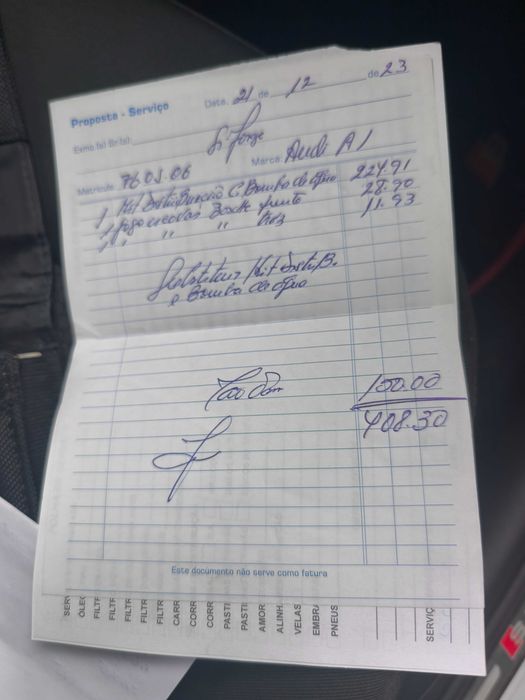 Proposta - Serviço
Data, 21 de 12 de 23
Exmo.(a) Sr.(a):
Sr. Jorge
Matrícula 76.OJ.06 Marca: Audi A1
1 Kit Distribuição C. Bomba de água 224.91
1 Jogo escovas Bosch frente 28.90
1 " " " trás 11.93
Substituir Kit distrib.
e Bomba de água
Mão obra 150.00
408.30
Este documento não serve como fatura
SERV
ÓLEO
FILTR
FILTR
FILTR
FILTR
FILTR
CARR
CORR
CORR
PASTI
PASTI
AMOR
ALINH.
VELAS
EMBRA
PNEUS
SERVIÇ